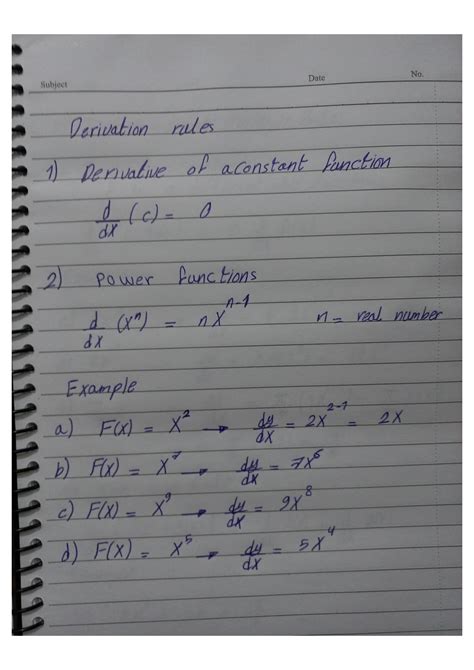 Subject Date No.
Derivation rules
1) Derivative of a constant function
d/dx (c) = 0
2) Power functions
d/dx (xⁿ) = n x^(n-1) n = real number
Example
a) F(x) = x² → dy/dx = 2x^(2-1) = 2x
b) F(x) = x⁷ → dy/dx = 7x⁶
c) F(x) = x⁹ → dy/dx = 9x⁸
d) F(x) = x⁵ → dy/dx = 5x⁴